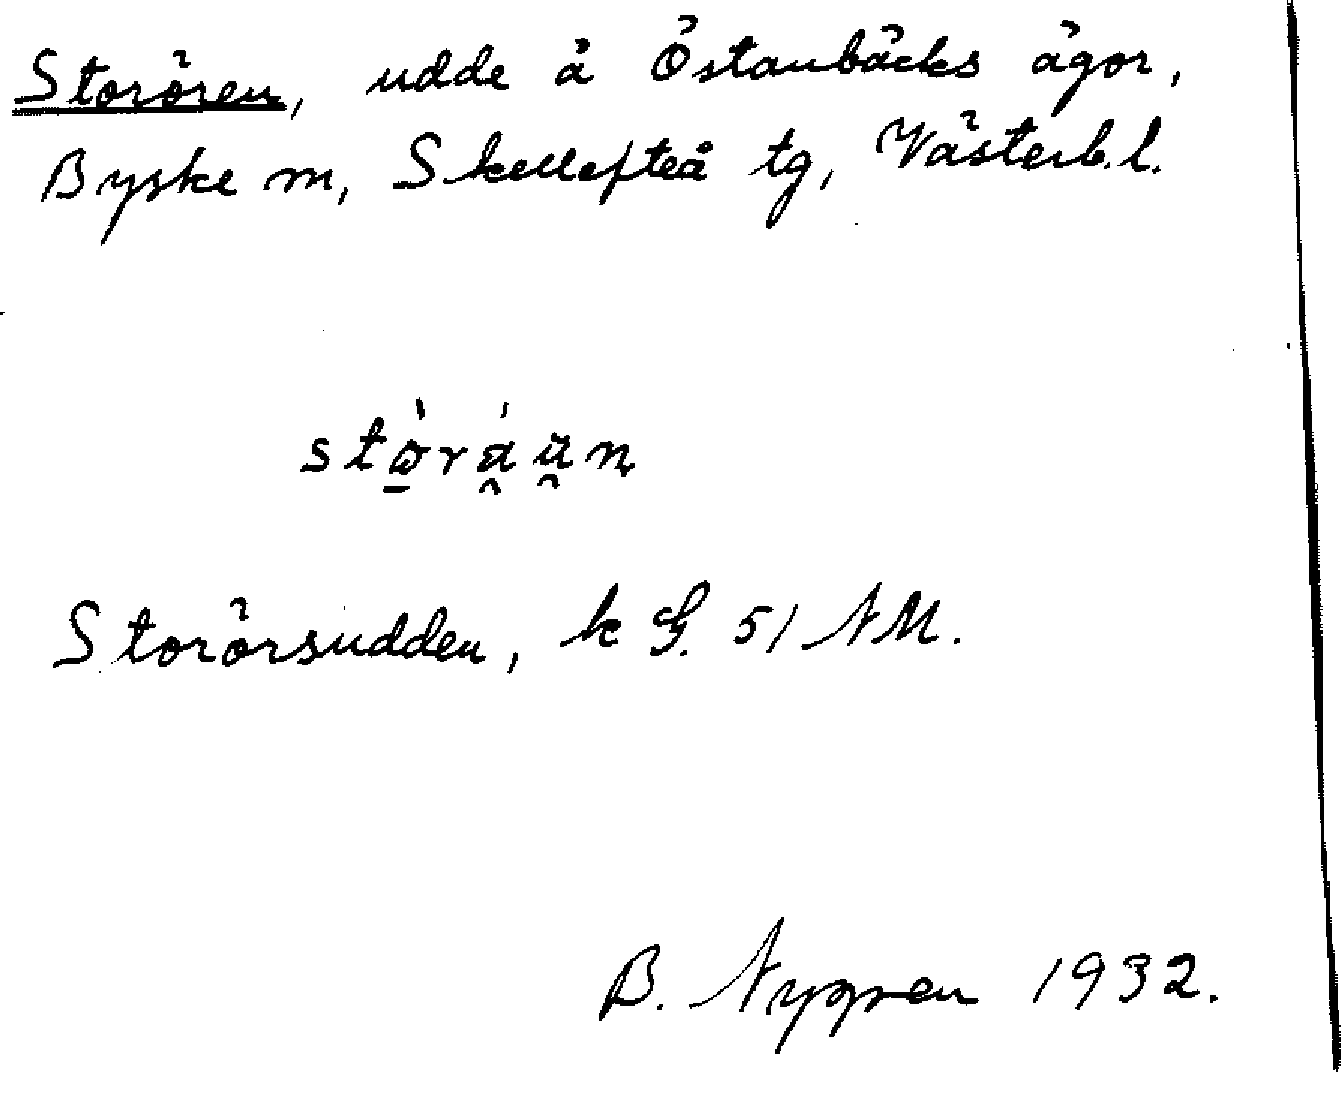 Storören, udde å Östanbäcks ägor,
Byske sn, Skellefteå tg, Västerb. l.
Storörsudden, k G. 51 NM.
B. Nygren 1932.